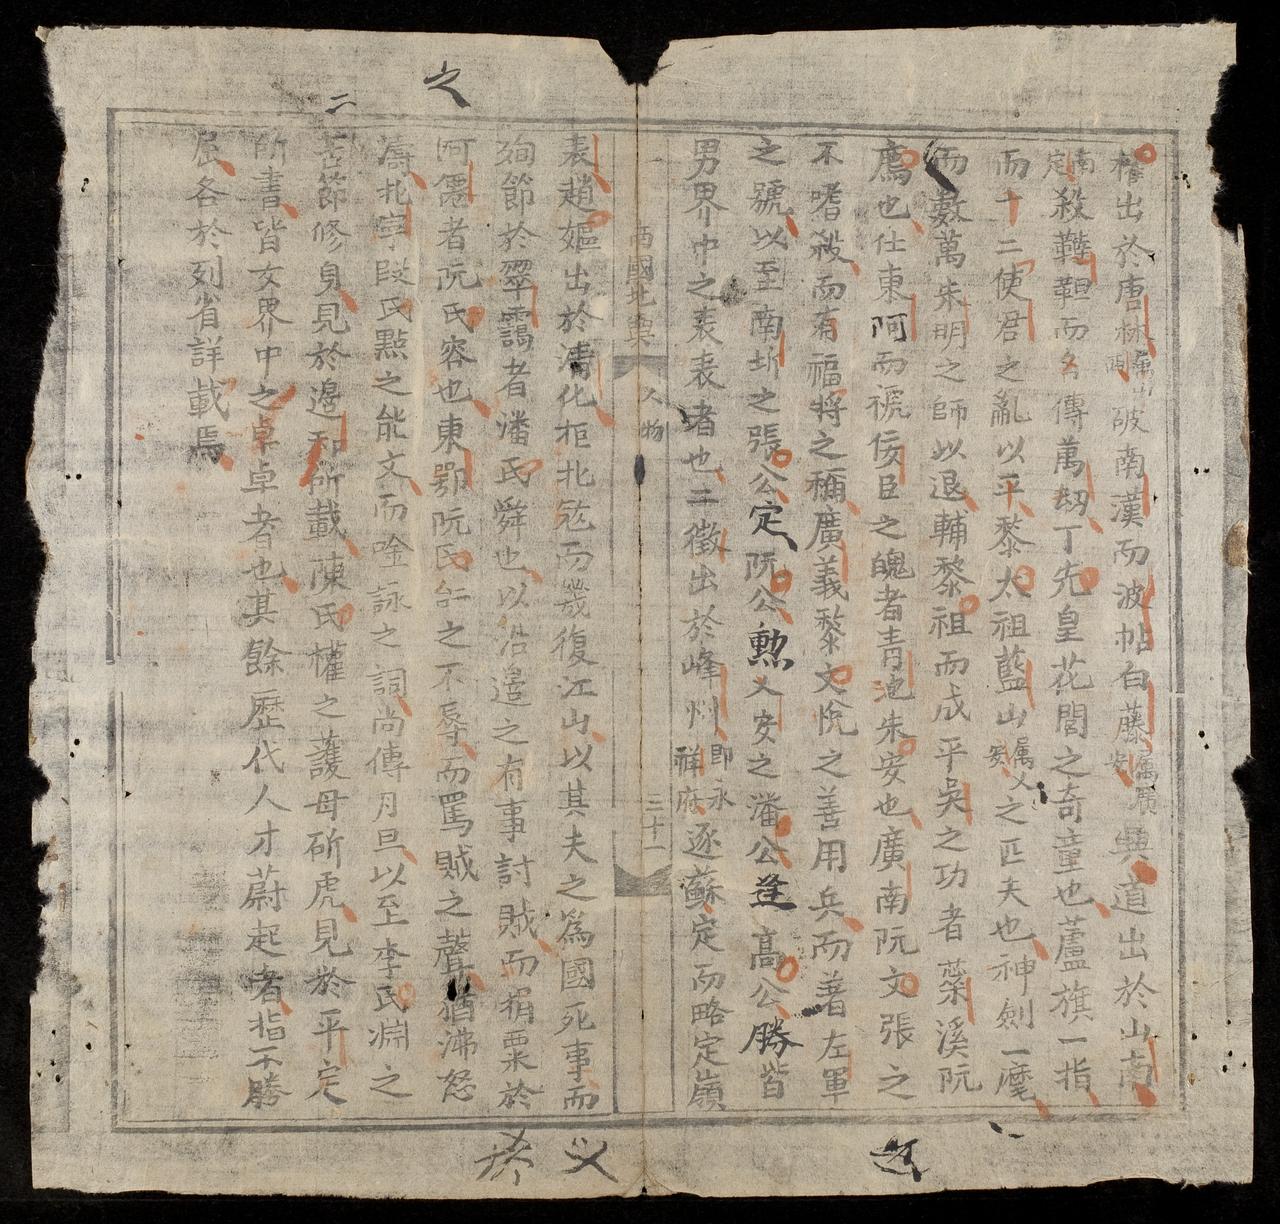 權出於唐林屬山西破南漢而波帖白藤屬廣安興道出於山南
南定殺韃靼而名傳萬刼丁先皇花閭之奇童也蘆旗一指
而十二使君之亂以平黎太祖藍山屬乂安之匹夫也神劍一麾
而數萬朱明之師以退輔黎祖而成平吳之功者蘂溪阮
廌也仕東阿而褫佞臣之魄者青池朱安也廣南阮文張之
不嗜殺而有福將之稱廣義黎文悅之善用兵而著左軍
之號以至南圻之張公定阮公勲乂安之潘公逢高公勝皆
男界中之表表者也二徵出於峰州即永祥府逐蘇定而略定嶺
南國地輿 人物 三十一
表趙嫗出於清化拒北寇而幾復江山以其夫之為國死事而
殉節於翠靄者潘氏舜也以沿邊之有事討賊而捐粟於
阿僊者阮氏容也東鄂阮氏年之不辱而罵賊之聲猶沸怒
濤北寧段氏點之能文而唫詠之詞尚傳月旦以至李氏淵之
苦節修身見於邊和所載陳氏權之護母斫虎見於平定
所書皆女界中之卓卓者也其餘歷代人才蔚起者指不勝
屈各於列省詳載焉
之
二
乂